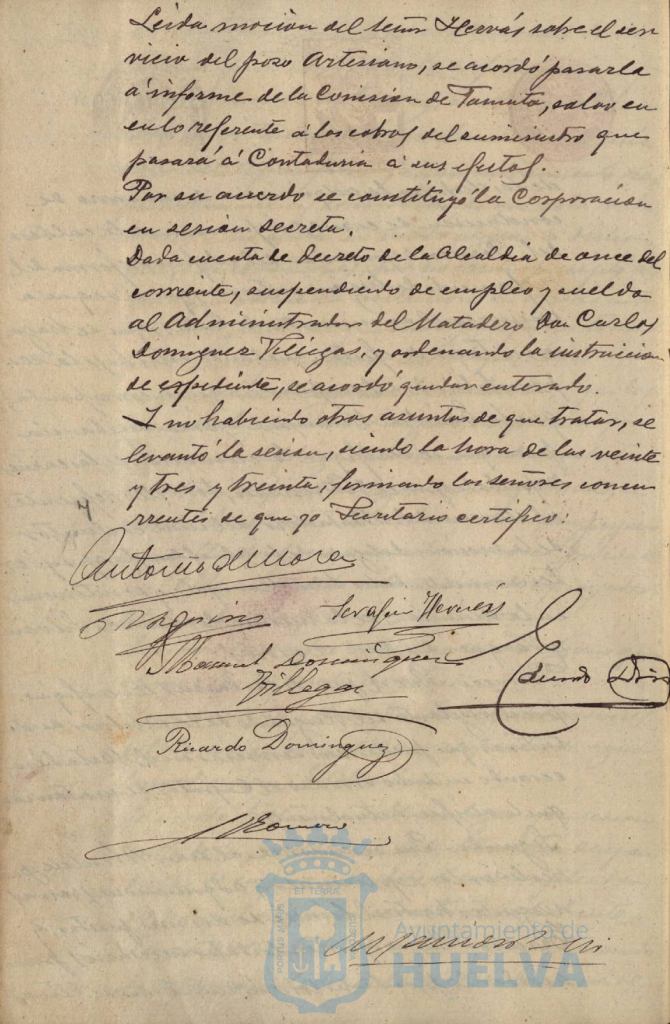 Leida moción del señor Hervás sobre el ser
vicio del pozo Artesiano, se acordó pasarla
á informe de la Comision de                , salvo en
en lo referente á los cobros del suministro que
pasará á Contaduria á sus efectos.
Por su acuerdo se constituyó la Corporación
en sesión secreta.
Dada cuenta de decreto de la Alcaldia de once del
corriente, suspendiendo de empleo y sueldo
al Administrador del Matadero Don Carlos
Dominguez Villegas, y ordenando la instruccion
de expediente, se acordó quedar enterado.
Y no habiendo otros asuntos de que tratar, se
levantó la sesion, siendo la hora de las veinte
y tres y treinta, firmando los señores concu
rrentes de que yo Secretario certifico:
Antonio de Mora
Serafin Hervás
Manuel Dominguez
Villegas
Eduardo Diaz
Ricardo Dominguez
Romero
ET TERRA
PORTUS MARIS
CUSTODIA
Ayuntamiento de
HUELVA